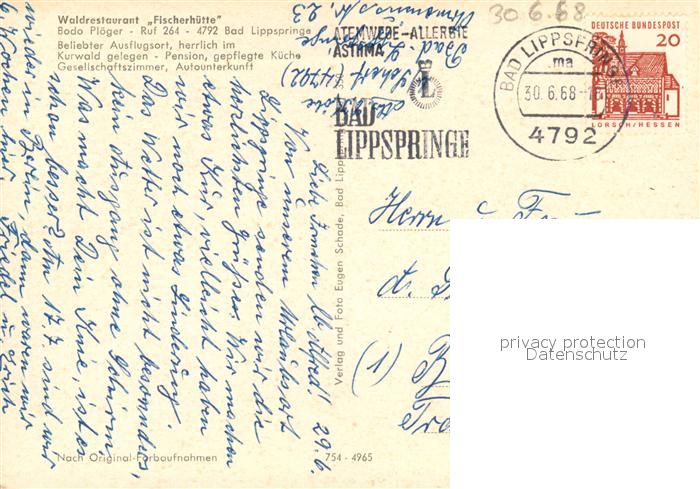 Waldrestaurant „Fischerhütte"
Bodo Plöger - Ruf 264 - 4792 Bad Lippspringe
Beliebter Ausflugsort, herrlich im
Kurwald gelegen - Pension, gepflegte Küche
Gesellschaftszimmer, Autounterkunft
30.6.68
ATEMWEGE-ALLERGIE
ASTHMA
L
BAD
LIPPSPRINGE
BAD LIPPSPRINGE
ma
30.6.68
4792
DEUTSCHE BUNDESPOST
20
LORSCH/HESSEN
29.6.
Liebe
Von unserem Urlaubsort
Lippspringe senden wir die
herzlichsten Grüße. Wir machen
etwas Kur, vielleicht haben
wir noch etwas Linderung.
Das Wetter ist nicht besonders,
kein Ausgang ohne Schirm.
Was macht Dein Knie, ist es
schon besser? Am 17.7 sind wir
wieder in Berlin, dann waren wir
6 Wochen
Bad
(4792)
23
Verlag und Foto Eugen Schade, Bad Lippspringe
Herrn u. Frau
(1) B
Nach Original-Farbaufnahmen
754 - 4965
privacy protection
Datenschutz